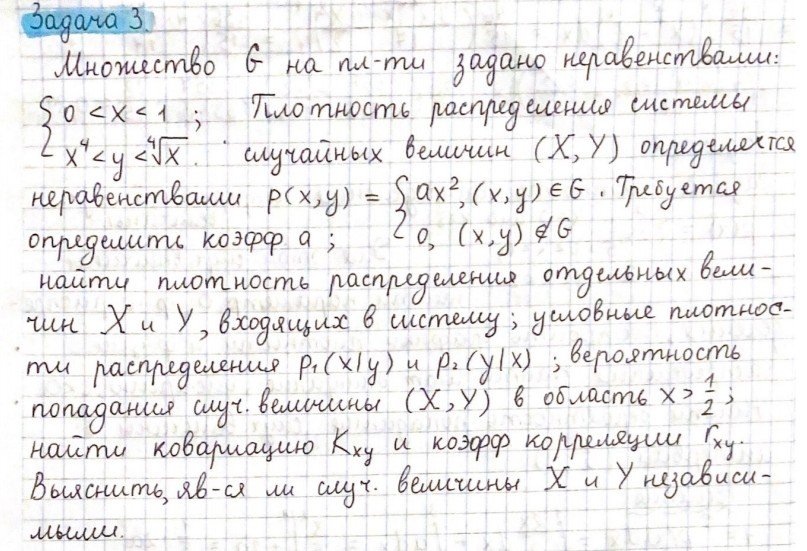 Задача 3.
Множество G на пл-ти задано неравенствами:
{ 0 < x < 1 ; Плотность распределения системы
x⁴ < y < ∜x. случайных величин (X, Y) определяется
неравенствами p(x, y) = { ax², (x, y) ∈ G. Требуется
определить коэфф a ; 0, (x, y) ∉ G
найти плотность распределения отдельных вели-
чин X и Y, входящих в систему; условные плотнос-
ти распределения p₁(x|y) и p₂(y|x) ; вероятность
попадания случ. величины (X, Y) в область x > 1/2 ;
найти ковариацию Kxy и коэфф корреляции rxy.
Выяснить, яв-ся ли случ. величины X и Y независи-
мыми.